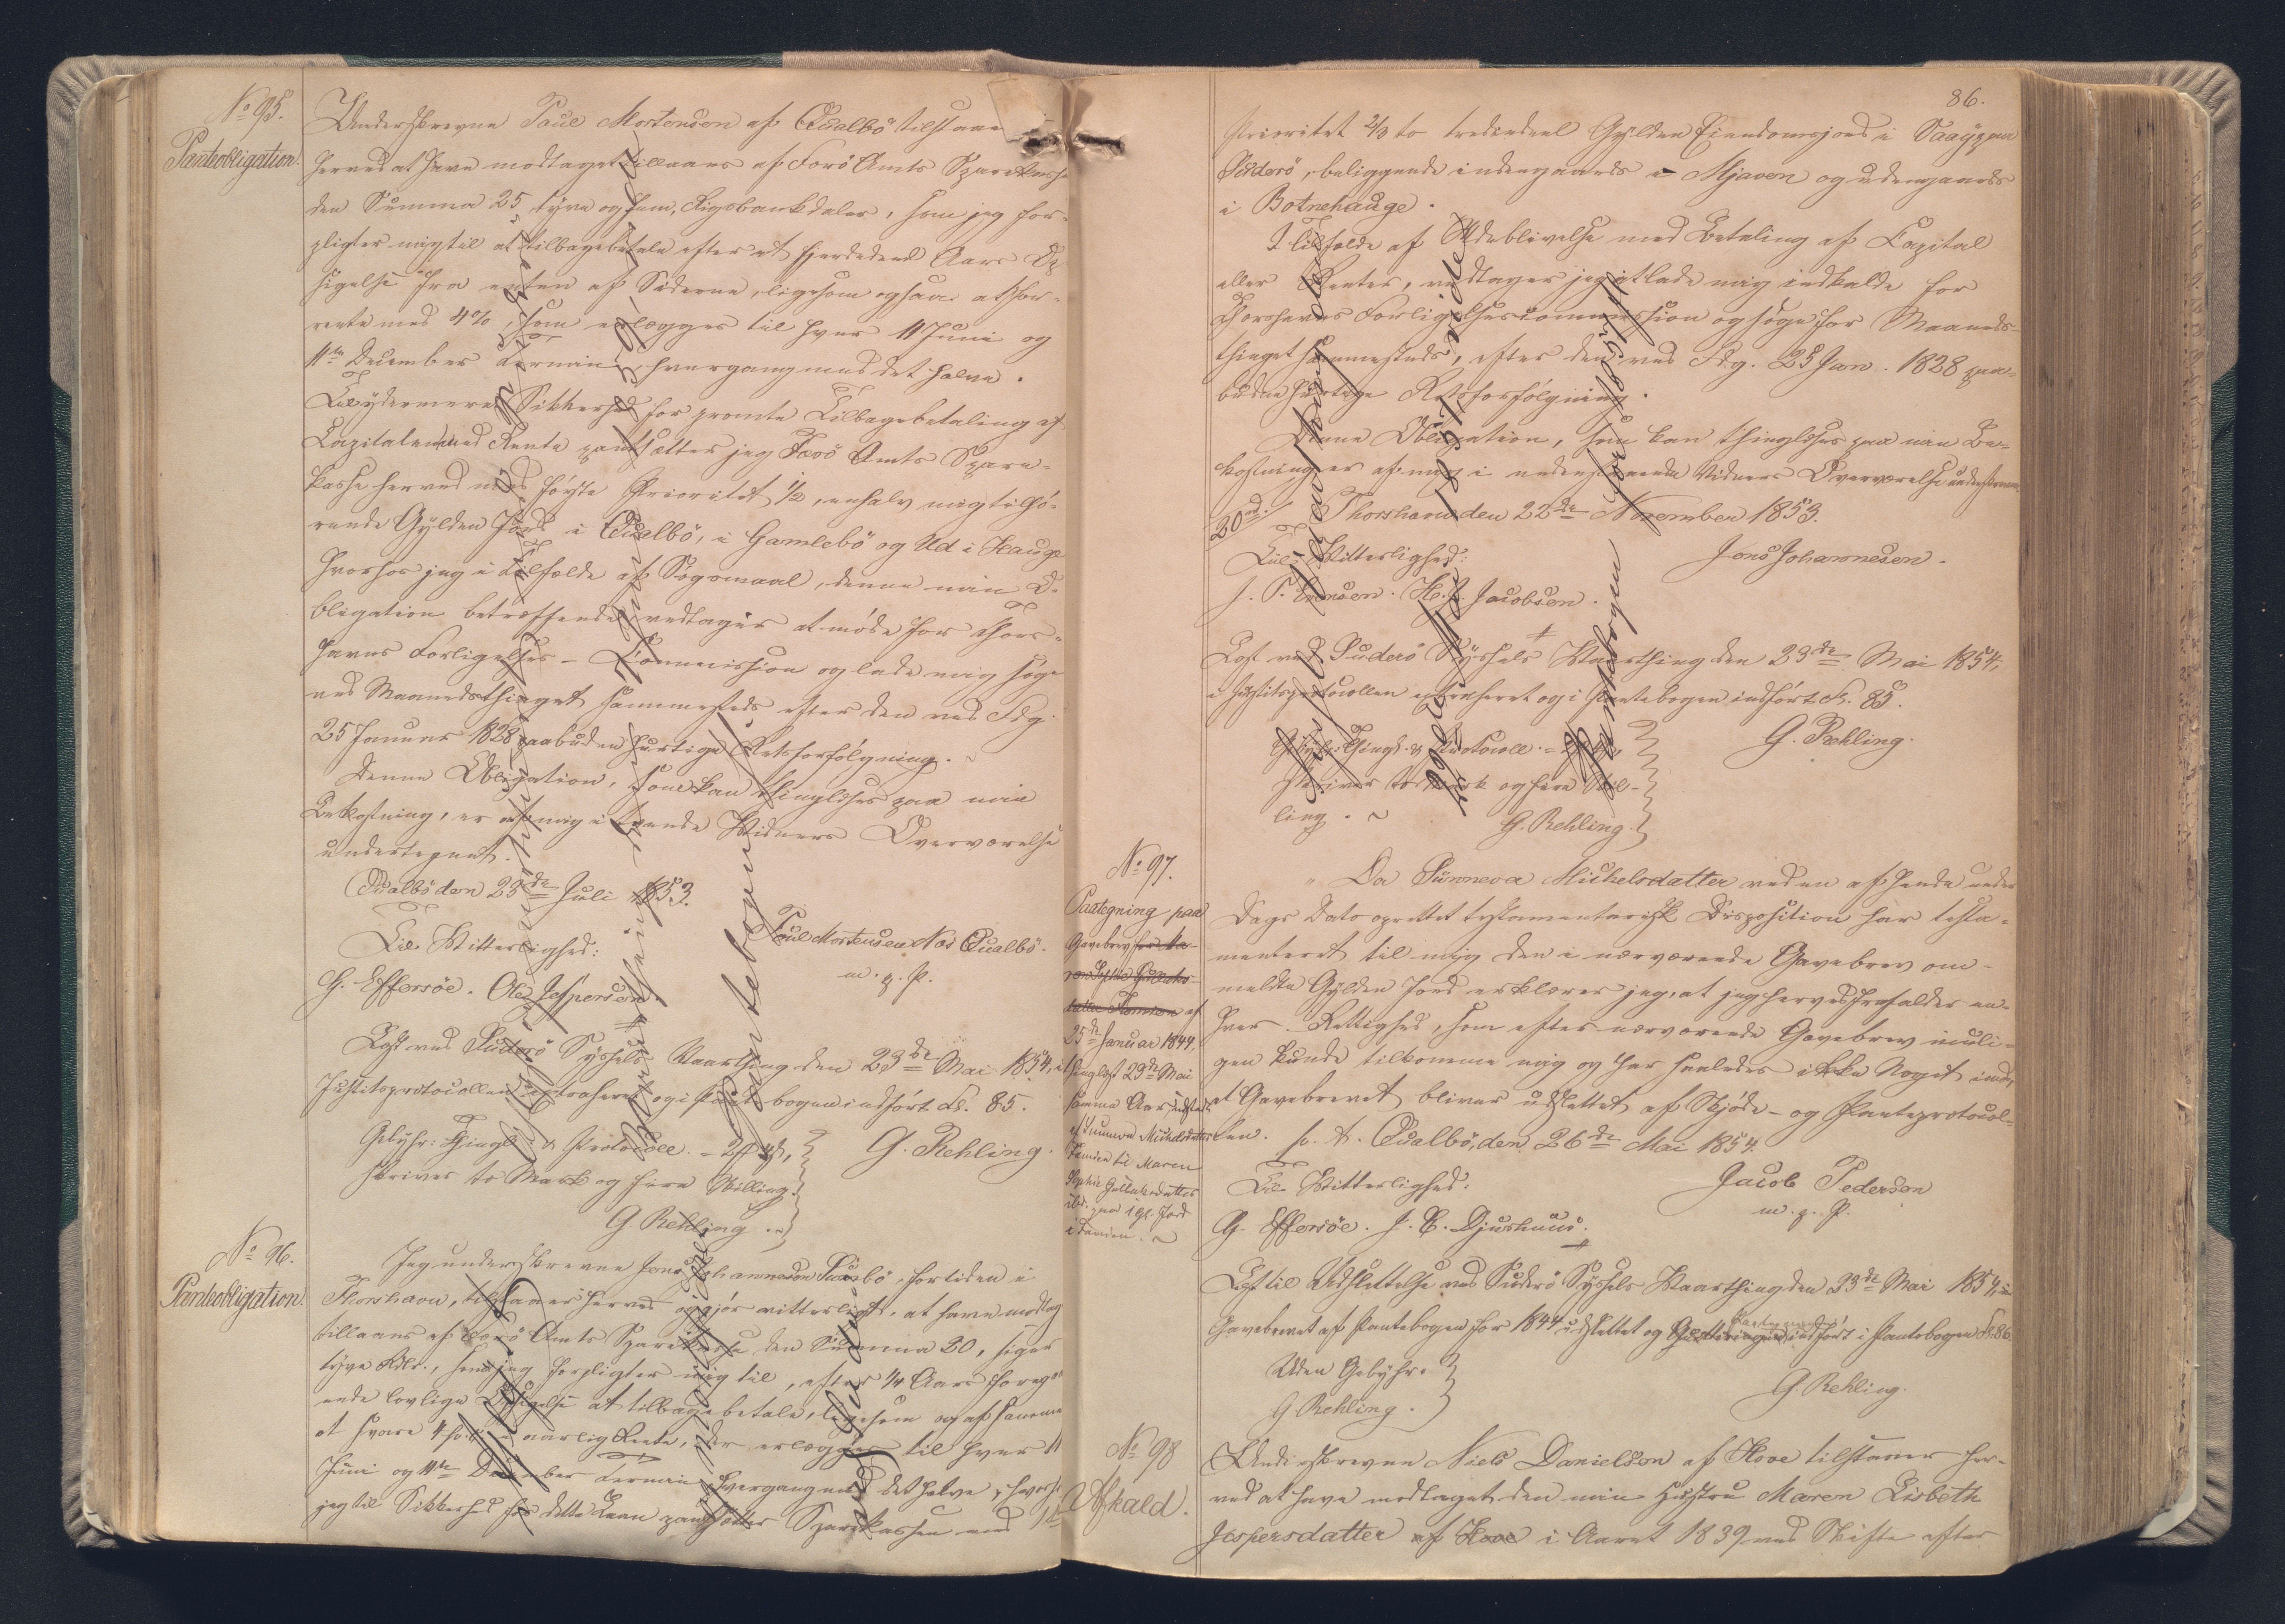 No 95.
Panteobligation.
Underskrevne Poul Mortensen af Qvalbö tilstaaer
herved at have modtaget tillaans af Færö Amts Sparekasse
den Summa 25, tyve og fem, Rigsbankdaler, som jeg for-
pligter mig til at tilbagebetale efter et fjerdedeel Aars Op-
sigelse fra enten af Siderne, ligesom ogsaa at for-
rente med 4%, som erlægges til hver 11 Juni og
11te December Termin, hvergang med det halve.
Til ydermere Sikkerhed for promte Tilbagebetaling af
Capitalen med Rente pantsætter jeg Færö Amts Spare-
kasse herved med första Prioritet 1/2, en halv mig tilhö-
rende Gylden Jord i Qvalbö, i Gamlebö og Ud i Hauge
hvorhos jeg i Tilfælde af Søgsmaal, denne min O-
bligation betræffende, vedtager at möde for Thors-
havns Forligelses-Commission og lade mig søge
ved Maanedsthinget sammesteds efter den ved Fdg.
25 Januar 1828 paabudne hurtige Retsforfølgning.
Denne Obligation, som kan thinglæses paa min
Bekostning, er af mig i tvende Vidners Overværelse
undertegnet.
Qvalbö den 23de Juli 1853.
Til Vitterlighed:
Poul Mortensen Næs Qvalbö.
m. p. P.
G. Effersöe. Ole Jespersen
Læst ved Suderö Syssels Vaarthing den 23de Mai 1854, i
Justitsprotocollen extraheret og i Pantebogen indført Fol. 85.
Gebyhr: Thingl. & Protocoll. = 2
skriver to Mark og fire Skilling.
G. Rehling.
G. Rehling.
No 96.
Panteobligation.
Jeg underskrevne Jens Johannesen Sumbö, for tiden i
Thorshavn, tilstaaer herved og gjör vitterligt, at have modtag
tillaans af Færö Amts Sparekasse den Summa 20, siger
tyve Rdlr., som jeg forpligter mig til, efter 1/4 Aars foreg-
ende lovlige Opsigelse at tilbagebetale, ligesom og af samme
at svare 4 pr. C. aarlig Rente, der erlægges til hver 11
Juni og 11te December Termin, hvergang med det halve, hvorfor
jeg til Sikkerhed for dette Laan pantsætter Sparekassen med 1ste
86.
Prioritet 2/3 to tredindeel Gylden Eiendomsjord i Vaag paa
Suderö, beliggende indengaards i Mjaven og udengaards
i Botnehauge.
I Tilfælde af Udeblivelse med Betaling af Capital
eller Renter, vedtager jeg at lade mig indkalde for
Thorshavns Forligelsescommission og søge for Maaneds-
thinget sammesteds, efter den ved Fdg. 25 Jan. 1828 paa-
budne hurtige Retsforfølgning.
Denne Obligation, som kan thinglæses paa min Be-
kostning er af mig i nedenstaaende Vidners Overværelse underskreven.
Thorshavn den 22de November 1853.
Til Vitterlighed:
Jens Johannesen.
J. P. Hansen. H. J. Jacobsen.
Læst ved Suderö Syssels Vaarthing den 23de Mai 1854,
i Justitsprotocollen extraheret og i Pantebogen indført Fol. 85.
G. Rehling.
Gebyhr: Thingl. & Protocoll.
skriver to Mark og fire Skil-
ling.
G. Rehling.
No 97.
Paategning paa
Gavebrev
af
25de Januar 1844,
thinglæst 23de Mai
samme Aar, udstedt
af Sunneva Michelsdatter
Famien til Maren
Sophie
paa 1 gl. Jord
i Famien.
Da Sunneva Michelsdatter ved en af hende under
Dags Dato oprettet testamentarisk Disposition har testa-
menteret til mig den i nærværende Gavebrev om-
meldte Gylden Jord erklærer jeg, at jeg herved frafalder en-
hver Rettighed, som efter nærværende Gavebrev muli-
gen kunde tilkomme mig og har saaledes ikke Noget imod,
at Gavebrevet bliver udslettet af Skjøde- og Panteprotocol-
len. p. t. Qvalbö, den 26de Mai 1854.
Til Vitterlighed:
Jacob Pedersen
m. p. P.
G. Effersöe. J. C. Djurhuus.
Læst til Udslettelse ved Suderö Syssels Vaarthing den 23de Mai 1854,
Gavebrevet af Pantebogen for 1844 udslettet og Paategningen indført i Pantebogen Fol. 86
Uden Gebyhr.
G. Rehling.
G. Rehling.
No 98
Afkald.
Underskrevne Niels Danielsen af Hove tilstaaer her-
ved at have modtaget den min Hustru Maren Lisbeth
Jespersdatter af Hove i Aaret 1839 ved Skifte efter